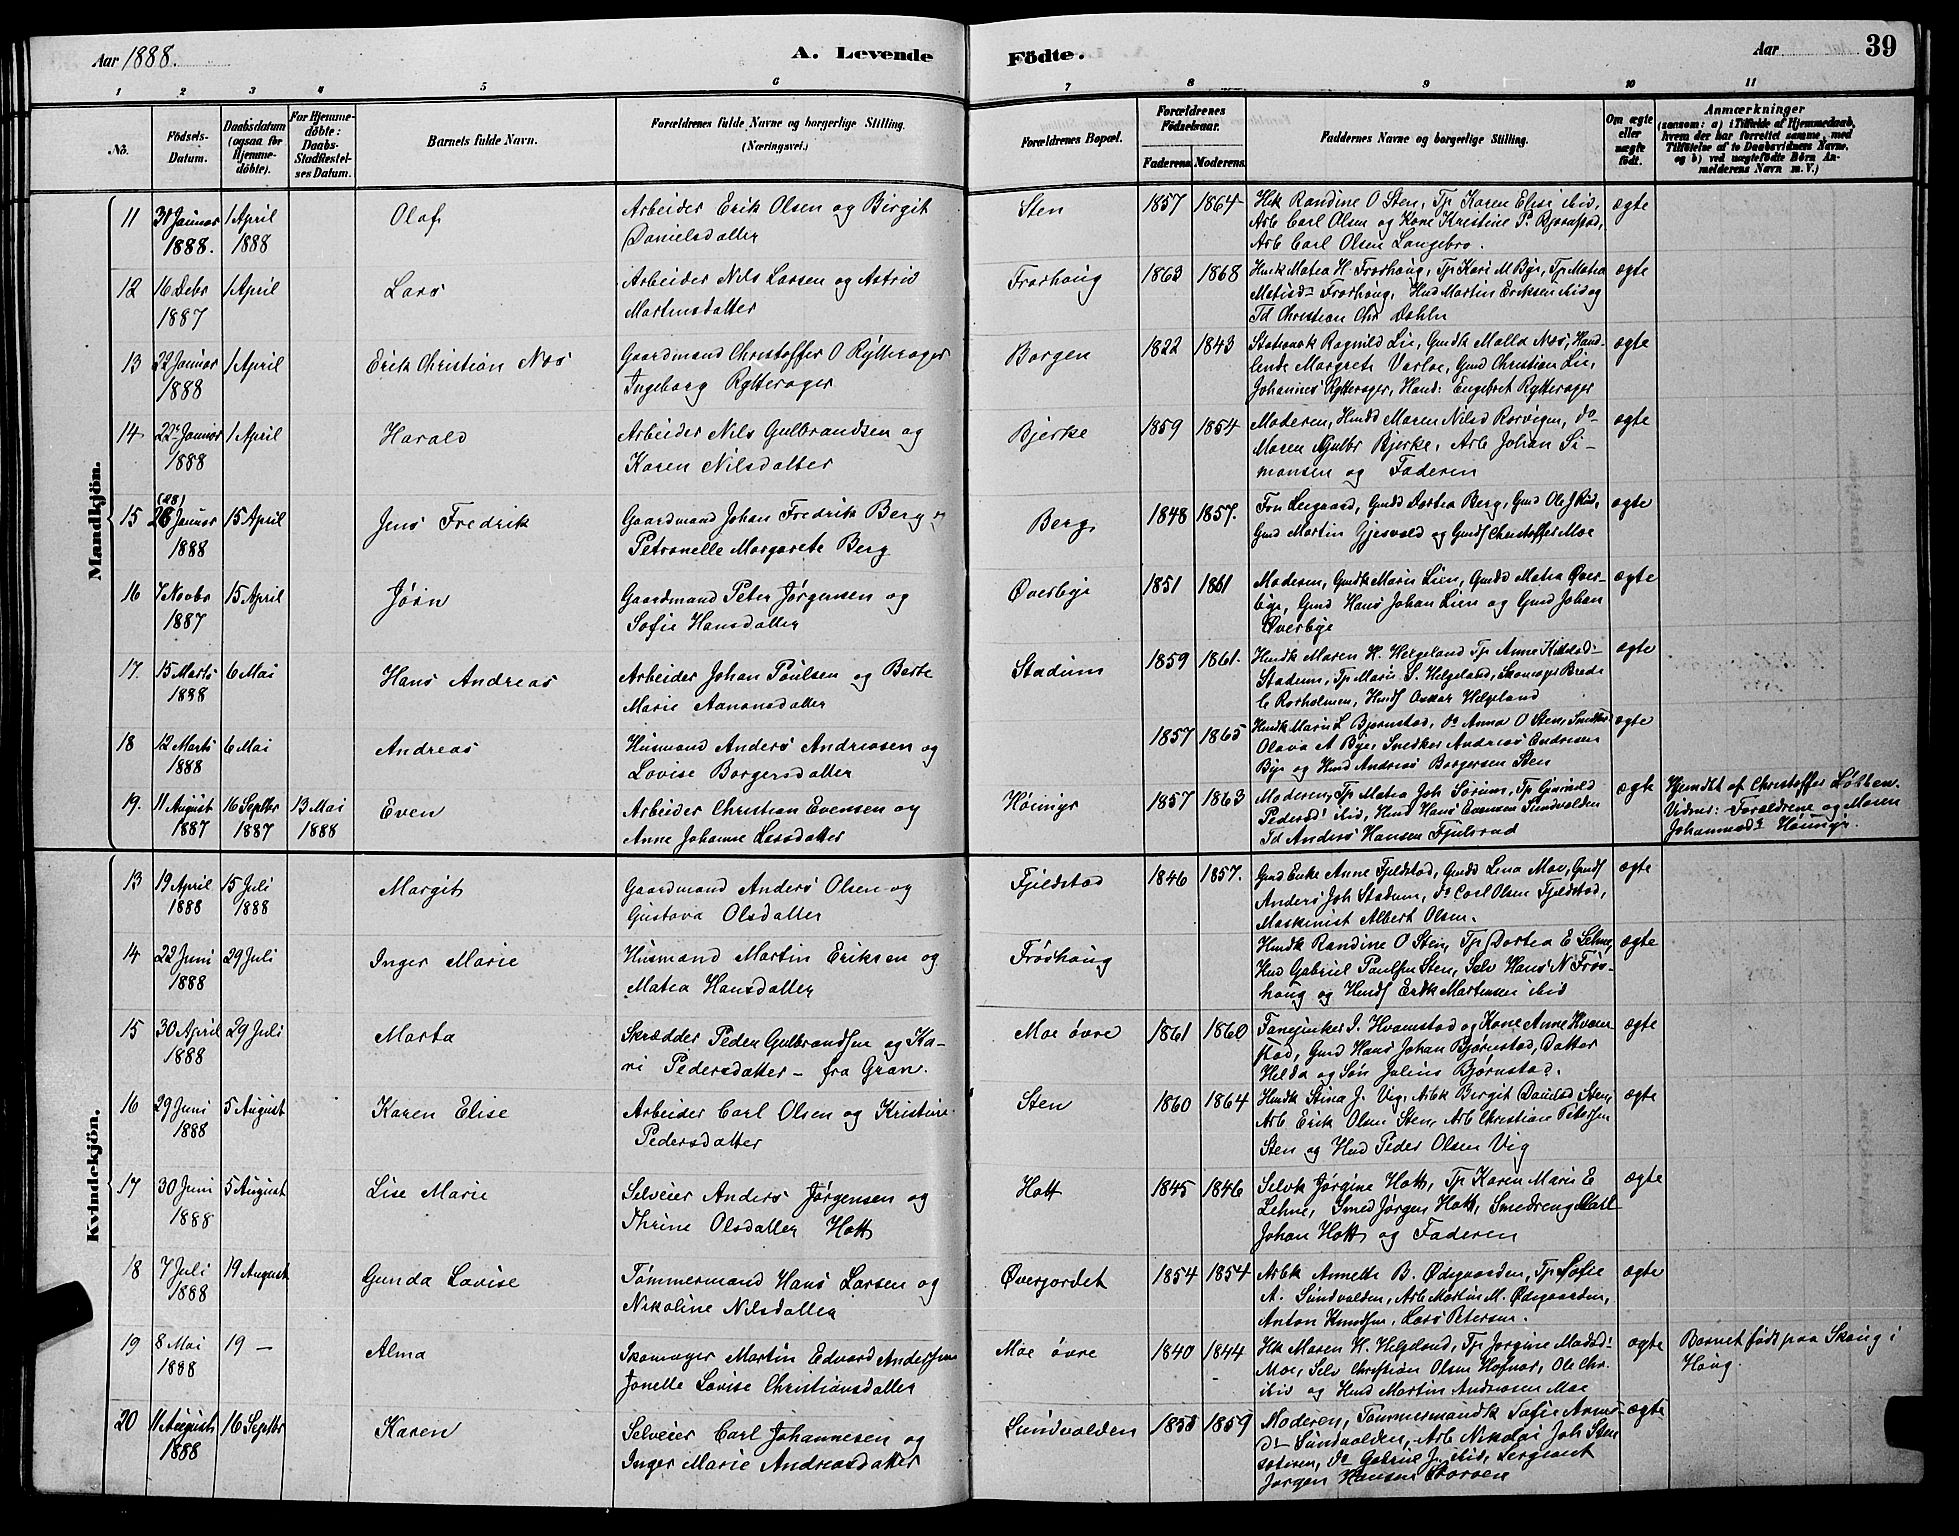 Aar 1888.
A. Levende
Födte.
Aar
39
1 2 3 4 5 6 7 8 9 10 11
No.
Födsels-Datum.
Daabsdatum (ogsaa for Hjemme-döbte).
For Hjemme-döbte: Daabs-Stadfæstel-ses Datum.
Barnets fulde Navn.
Forældrenes fulde Navne og borgerlige Stilling. (Næringsvei.)
Forældrenes Bopæl.
Forældrenes Födselsaar.
Faderens. Moderens.
Faddernes Navne og borgerlige Stilling.
Om ægte eller uægte födt.
Anmærkninger
(saasom: a) i Tilfælde af Hjemmedaab, hvem der har forrettet samme, med Tilföielse af to Daabsvidners Navne, og b) ved uægtefödte Börn Anmelderens Navn m. V.)
Mandkjön.
11 31 Januar 1888. 1 April 1888 Olaf Arbeider Erik Olsen og Birgit Danielsdatter Sten 1857 1864 Hk Randine O Sten, Tp Karen Elise ibid, Arb Carl Olsen og Kone Kristine P. Bjørnstad, Arb Carl Olsen Langebro. ægte
12 16 Debr 1887 1 April Lars Arbeider Nils Larsen og Astrid Martinsdatter Frøshoug 1863 1868 Husk Matea H. Frøshoug, Tp Kari M Bye, Tp Matea Matisd Frøshoug, Hmd Martin Eriksen ibid og Td Christian Chr Dahlen ægte
13 22 Januar 1888 1 April Erik Christian Næs Gaardmand Christoffer O Rytterager Ingeborg Rytterager Borgen 1822 1843 Ragnild Lie, Gmdk Malla Næs, Handlende Margrete Varloe, Gmd Christian Lie, Johannes Rytterager, Hand: Engebret Rytterager ægte
14 22 Januar 1888 1 April Harald Arbeider Nils Gulbrandsen og Karen Nilsdatter Bjerke 1859 1854 Moderen, Husd Maren Nilsd Rørvigen, do Maren Gulbr Bjerke, Arb Johan Simonsen og Faderen ægte
15 (28) 26 Januar 1888 15 April Jens Fredrik Gaardmand Johan Fredrik Berg og Petronelle Margarete Berg Berg 1848 1857. Fru Leegaard, Gmdd Dortea Berg, Gmd Ole J Rud, Gmd Martin Gjesvold og Gmds Christoffer Moe ægte
16 7 Novbr 1887 15 April Jørn Gaardmand Peter Jørgensen og Sofie Hansdatter Øverbye 1851 1861 Moderen, Gmdk Marie Lien, Gmdd Matea Øverbye, Gmd Hans Johan Lien og Gmd Johan Øverbye ægte
17. 15 Marts 1888 6 Mai Hans Andreas Arbeider Johan Poulsen og Berte Marie Aanonsdatter Stadum 1859 1861. Hmdk Maren H. Helgeland Tp Anne Stadum, Tp Marie S. Helgeland, Skomager Brede C Rorholmen, Hmds Oskar Helgeland ægte
18 12 Marts 1888 6 Mai Andreas Husmand Anders Andreasen og Lovise Borgersdatter 1857 1865 Hmdk Marie L Bjørnstad, do Anna O Sten, Olava A Bye, Snedker Andreas Endresen Bye og Hmd Andreas Borgersen Sten ægte
19. 11 August 1887 16 Septbr 1887 13 Mai 1888 Even Arbeider Christian Evensen og Anne Johanne Larsdatter Höimyr 1857 1863 Moderen, Tp Matea Joh Sørum, Tp Gunhild Pedersd ibid, Hmd Hans Evensen Sundvolden Td Anders Hansen Fjulsrud ægte Hjemdbt af Christoffer Løkken. Vidner: Forældrene og Maren Johannesd Höimyr.
Kvindekjön.
13 19 April 1888 15 Juli 1888 Margit Gaardmand Anders Olsen og Gustava Olsdatter Fjeldstad 1846 1857. Gmd Enke Anne Fjeldstad, Gmdd Lena Moe, Gmds Anders Joh Stadum, do Carl Olsen Fjeldstad, Maskinist Albert Olsen. ægte
14 22 Juni 1888 29 Juli Inger Marie Husmand Martin Eriksen og Matea Hansdatter Frøshoug Hmdk Randine O Sten, Tp Dortea E Lehne, Hmd Gabriel Paulsen Sten, Selv Hans N Frøshoug og Hmds Erik Martinsen ibid ægte
15 30 April 1888 29 Juli Marta Skrædder Peder Gulbrandsen og Kari Pedersdatter - fra Gran. Moe øvre 1861 1860 Fanejunker J. Hvamstad og Kone Anne Hvamstad, Gmd Hans Johan Bjørnstad, Datter Helda og Søn Julius Bjørnstad. ægte
16 29 Juni 1888 5 August Karen Elise Arbeider Carl Olsen og Kristine Pedersdatter Sten 1860 1864 Hmdk Stina J. Vig, Arbk Birgit Danielsd Sten, Arb Erik Olsen Sten, Arb Christian Petersen Sten og Hmd Peder Olsen Vig ægte
17 30 Juni 1888 5 August Lise Marie Selveier Anders Jørgensen og Thrine Olsdatter Hott Hott 1845 1846 Selvk Jørgine Hott, Tp Karen Marie E Lehne, Smed Jørgen Hott, Smedreng Carl Johan Hott og Faderen ægte
18 7 Juli 1888 19 August Gunda Lovise Tömmermand Hans Larsen og Nikoline Nilsdatter Øverjordet 1854 1854 Arbk Annette B. Ødegaarden, Tp Sofie A. Sundvolden, Arb Martin M. Ødegaarden, Anton Knudsen, Lars Petersen. ægte
19 8 Mai 1888 19 — Alma Skomager Martin Edvard Andersen Jonette Lovise Christiansdatter Moe øvre 1840 1844 Hk Maren H. Helgeland, Tp Jørgine Madsd Moe, Selv Christian Olsen Hofnor, Ole Chr. ibid og Hmd Martin Andreasen Moe ægte Barnet födt paa Skoug i Houg.
20 11 August 1888 16 Septbr Karen Selveier Carl Johannesen og Inger Marie Andreasdatter Sundvolden 1858 1859 Moderen, Tømmermandk Sofie Sundvolden, Arb Nikolai Joh Sten, do Gabriel J. ibid, Sergeant Jørgen Hansen Storøen ægte